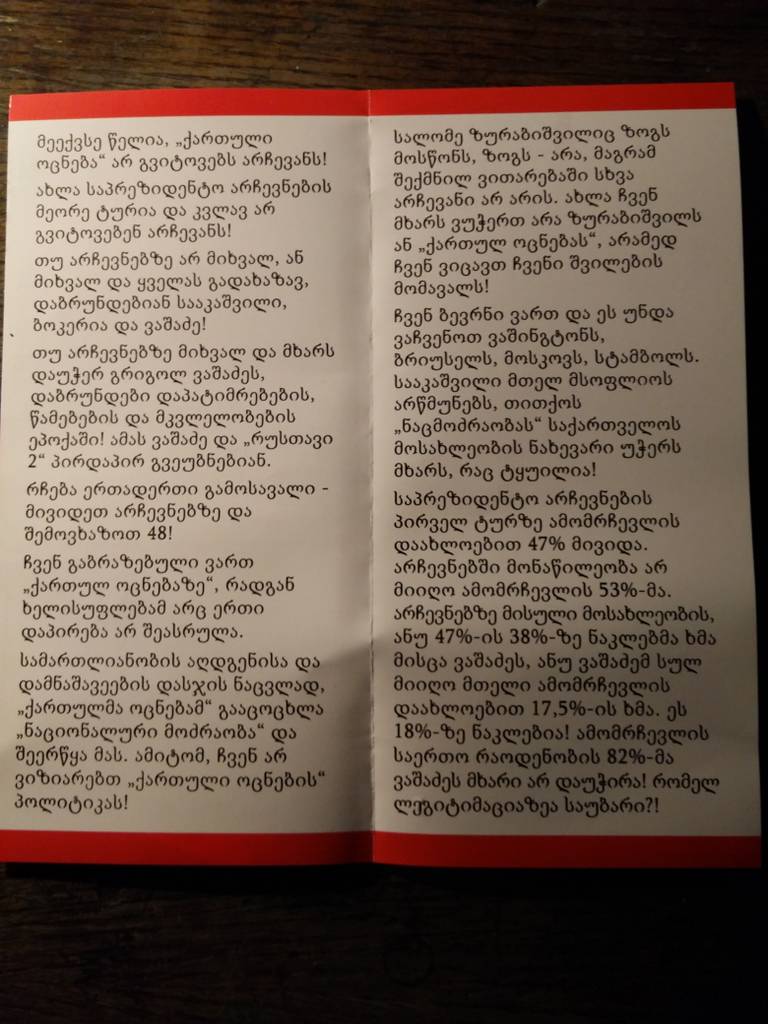 მეექვსე წელია, „ქართული
ოცნება“ არ გვიტოვებს არჩევანს!
ახლა საპრეზიდენტო არჩევნების
მეორე ტურია და კვლავ არ
გვიტოვებენ არჩევანს!
თუ არჩევნებზე არ მიხვალ, ან
მიხვალ და ყველას გადახაზავ,
დაბრუნდებიან სააკაშვილი,
ბოკერია და ვაშაძე!
თუ არჩევნებზე მიხვალ და მხარს
დაუჭერ გრიგოლ ვაშაძეს,
დაბრუნდები დაპატიმრებების,
წამებების და მკვლელობების
ეპოქაში! ამას ვაშაძე და „რუსთავი
2“ პირდაპირ გვეუბნებიან.
რჩება ერთადერთი გამოსავალი -
მივიდეთ არჩევნებზე და
შემოვხაზოთ 48!
ჩვენ გაბრაზებული ვართ
„ქართულ ოცნებაზე“, რადგან
ხელისუფლებამ არც ერთი
დაპირება არ შეასრულა.
სამართლიანობის აღდგენისა და
დამნაშავეების დასჯის ნაცვლად,
„ქართულმა ოცნებამ“ გააცოცხლა
„ნაციონალური მოძრაობა“ და
შეერწყა მას. ამიტომ, ჩვენ არ
ვიზიარებთ „ქართული ოცნების“
პოლიტიკას!
სალომე ზურაბიშვილიც ზოგს
მოსწონს, ზოგს - არა, მაგრამ
შექმნილ ვითარებაში სხვა
არჩევანი არ არის. ახლა ჩვენ
მხარს ვუჭერთ არა ზურაბიშვილს
ან „ქართულ ოცნებას“, არამედ
ჩვენ ვიცავთ ჩვენი შვილების
მომავალს!
ჩვენ ბევრნი ვართ და ეს უნდა
ვაჩვენოთ ვაშინგტონს,
ბრიუსელს, მოსკოვს, სტამბოლს.
სააკაშვილი მთელ მსოფლიოს
არწმუნებს, თითქოს
„ნაცმოძრაობას“ საქართველოს
მოსახლეობის ნახევარი უჭერს
მხარს, რაც ტყუილია!
საპრეზიდენტო არჩევნების
პირველ ტურზე ამომრჩევლის
დაახლოებით 47% მივიდა.
არჩევნებში მონაწილეობა არ
მიიღო ამომრჩევლის 53%-მა.
არჩევნებზე მისული მოსახლეობის,
ანუ 47%-ის 38%-ზე ნაკლებმა ხმა
მისცა ვაშაძეს, ანუ ვაშაძემ სულ
მიიღო მთელი ამომრჩევლის
დაახლოებით 17,5%-ის ხმა. ეს
18%-ზე ნაკლებია! ამომრჩევლის
საერთო რაოდენობის 82%-მა
ვაშაძეს მხარი არ დაუჭირა! რომელ
ლეგიტიმაციაზეა საუბარი?!